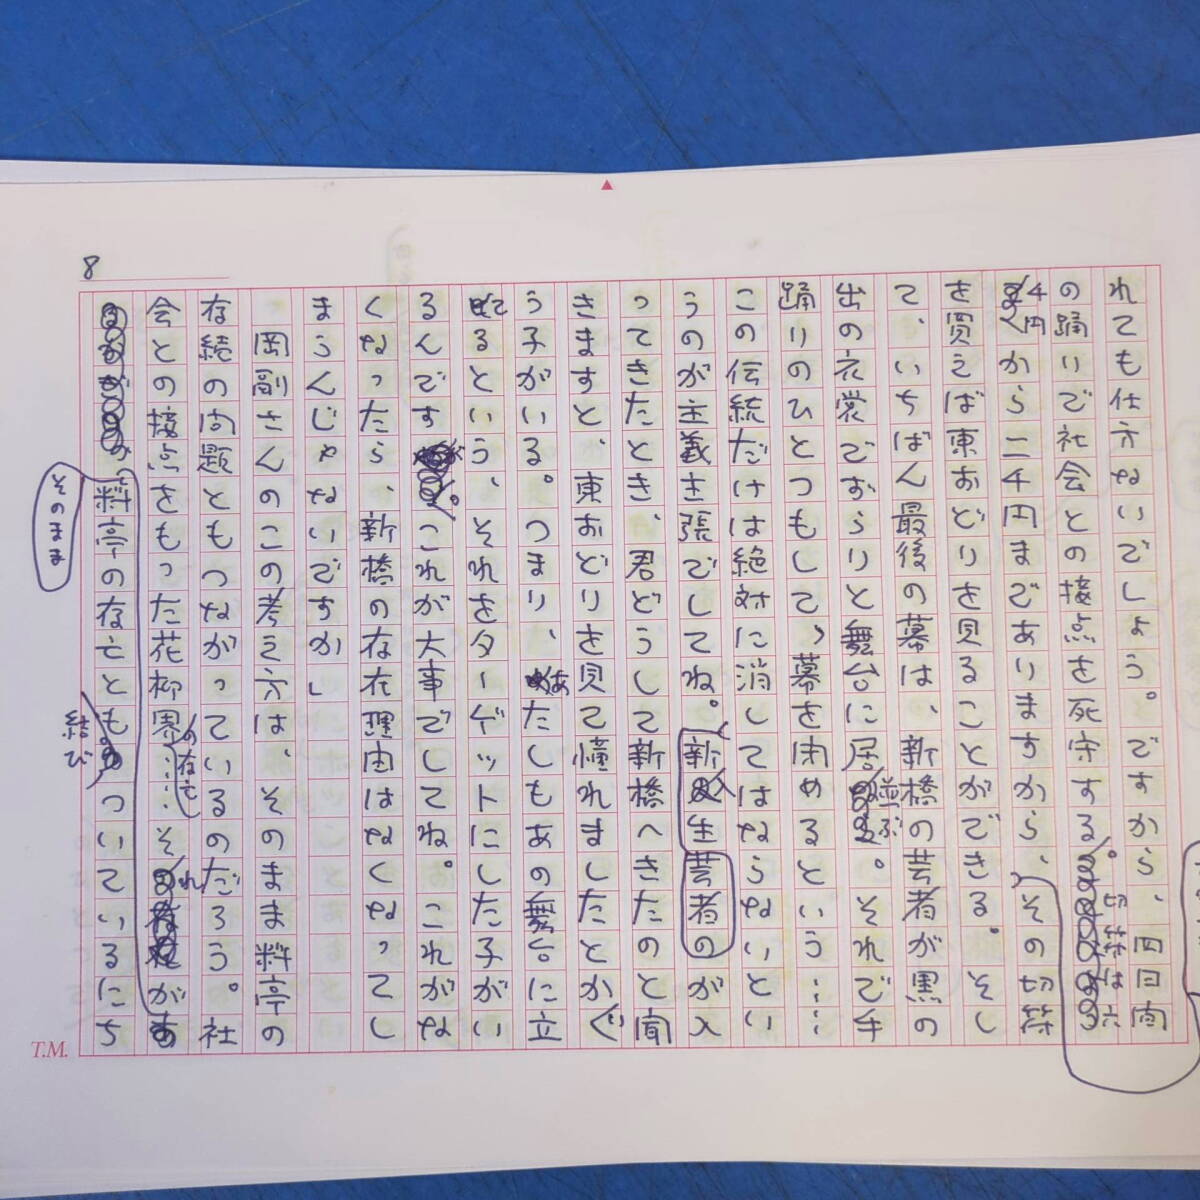 8
れても仕方ないでしょう。ですから、四日間
の踊りで社会との接点を死守する。切符は六
千円から二千円まであリますから、その切符
を買えば東おどりを見ることができる。そし
て、いちばん最後の幕は、新橋の芸者が黒の
出の衣裳でずらりと舞台に居並ぶ。それで手
踊りのひとつもして、幕を閉めるという……
この伝統だけは絶対に消してはならないとい
うのが主義主張でしてね。新人芸者が入
ってきたとき、君どうして新橋へきたのと聞
きますと、東おどりを見て憧れましたとかい
う子がいる。つまり、あたしもあの舞台に立
てるという、それをターゲットにした子がい
るんです。これが大事でしてね。これがな
くなったら、新橋の存在理由はなくなってし
まうんじゃないですか」
岡副さんのこの考え方は、そのまま料亭の
存続の問題ともつながっているのだろう。社
会との接点をもった花柳界の存在……それが
料亭の存亡とも結びついているにち
そのまま
T.M.